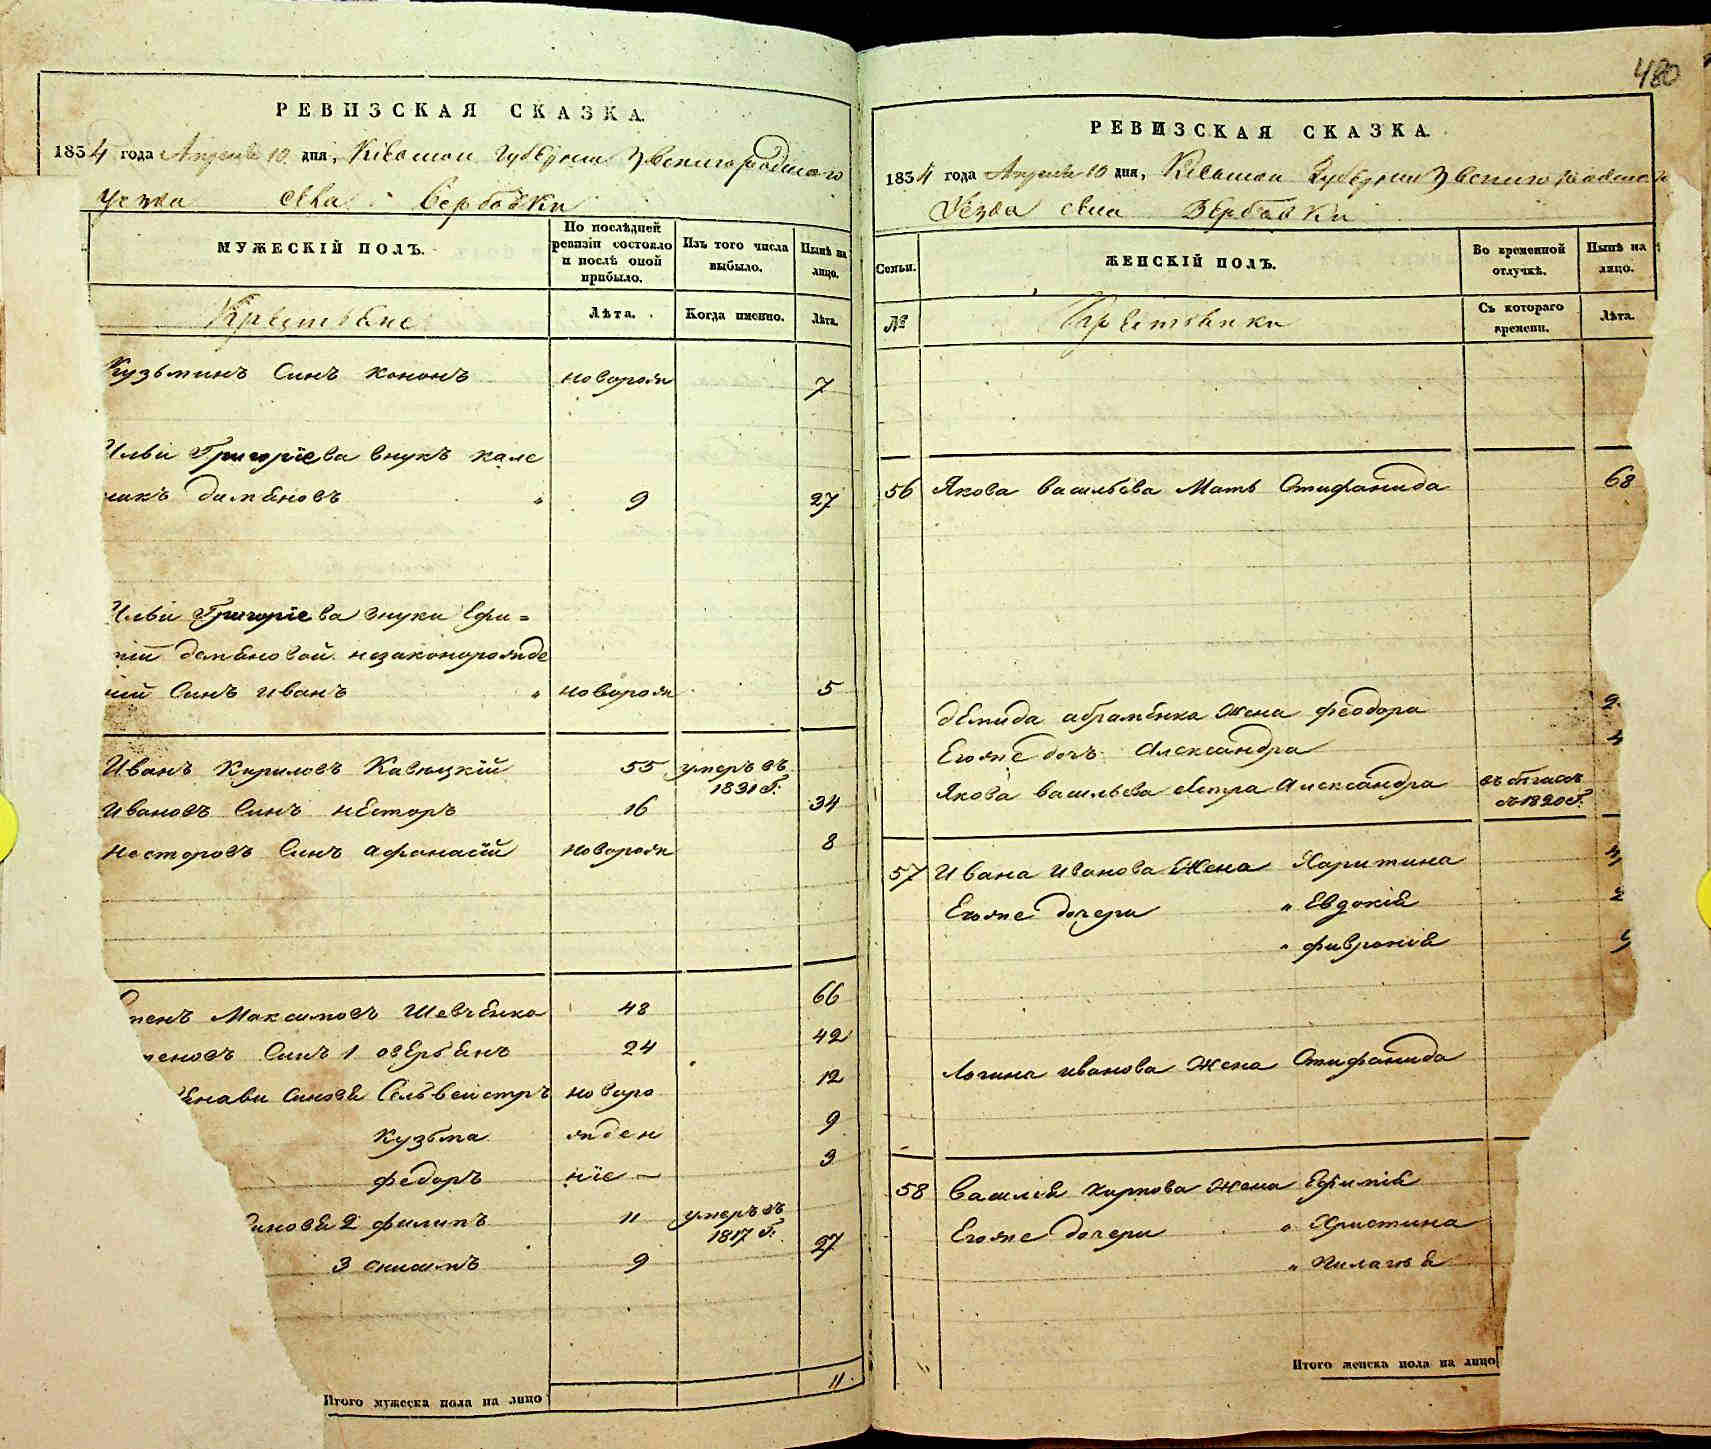 480
РЕВИЗСКАЯ СКАЗКА.
1834 года Апреля 10 дня, Кіевской Губерніи Звенигородскаго
уезда села Вербовки
МУЖЕСКІЙ ПОЛЪ.
По послѣдней ревизіи состояло и послѣ оной прибыло.
Изъ того числа выбыло.
Нынѣ на лицо.
Крестьяне
Лѣта.
Когда именно.
Лѣта.
Кузьминъ Синъ Кононъ новорож 7
Ильи Григоріева внукъ кале
никъ демяновъ " 9 27
Ильи Григоріева внуки Ефи=
мій демяновой незаконорожде
ній Синъ иванъ " новорож 5
Иванъ Кириловъ Кавецкій 55 умеръ въ 1831 Г.
Ивановъ Синъ нЕсторъ 16 34
несторовъ Синъ афанасій новорож 8
Максимовъ Шевченко 48 66
Синъ 1 авЕрьянъ 24 42
Синовя Сельвейстръ новоро 12
Кузьма жден 9
федоръ ніе 3
2 филипъ 11 умеръ въ 1817 Г.
3 онисимъ 9 27
Итого мужеска пола на лицо 11
РЕВИЗСКАЯ СКАЗКА.
1834 года Апреля 10 дня, Кіевской Губерніи Звенигородскаго
Уезда села ВЕрбовки
Семьи.
ЖЕНСКІЙ ПОЛЪ.
Во временной отлучкѣ.
Нынѣ на лицо.
№
Крестьянки
Съ котораго времени.
Лѣта.
56 Якова васильева Мать Стифанида 68
дЕмида абраменка жена феодора
Егоже дочъ Александра
Якова васильева сестра Александра въ бегахъ съ 1820 Г.
57 Ивана Иванова Жена Харитина
Егоже дочери " Евдокія
" февронія
Логина иванова Жена Стифанида
58 Василія карпова жена Ефимія
Егоже дочери " Христина
" пилагия
Итого женска пола на лицо